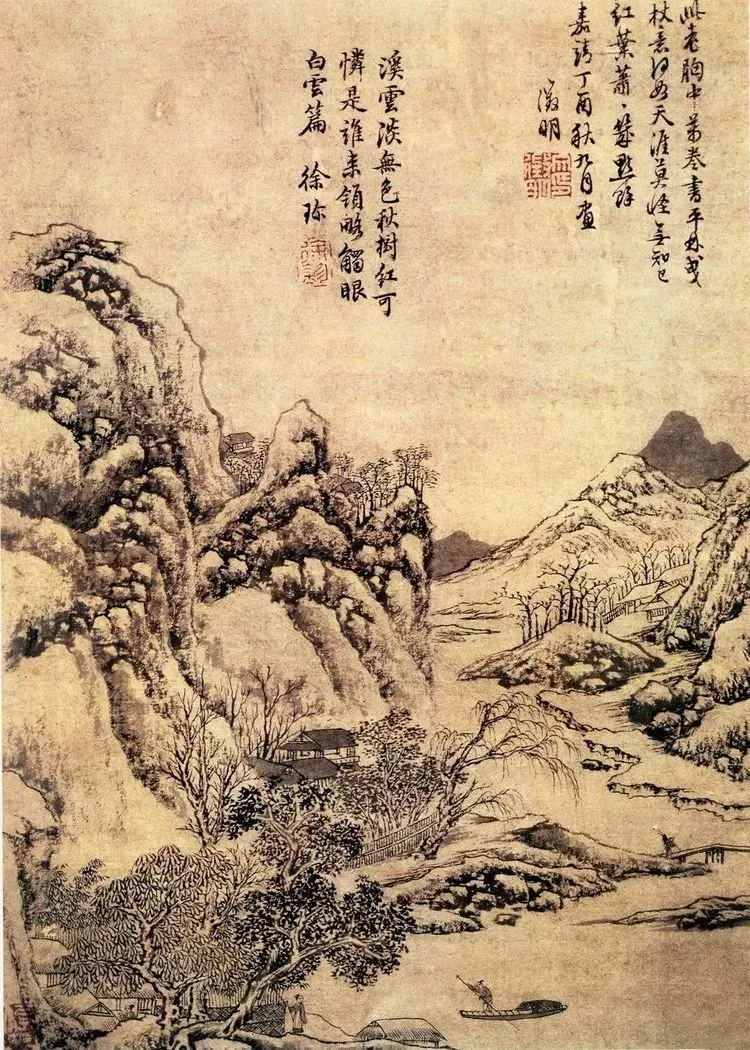 此老胸中萬卷書平林曳
杖意何如天涯莫怪無知己
紅葉蕭〻
嘉靖丁酉秋九月畫
徵明
溪雲淡無色秋樹紅可
憐是誰来領略觸眼
白雲篇 徐珎